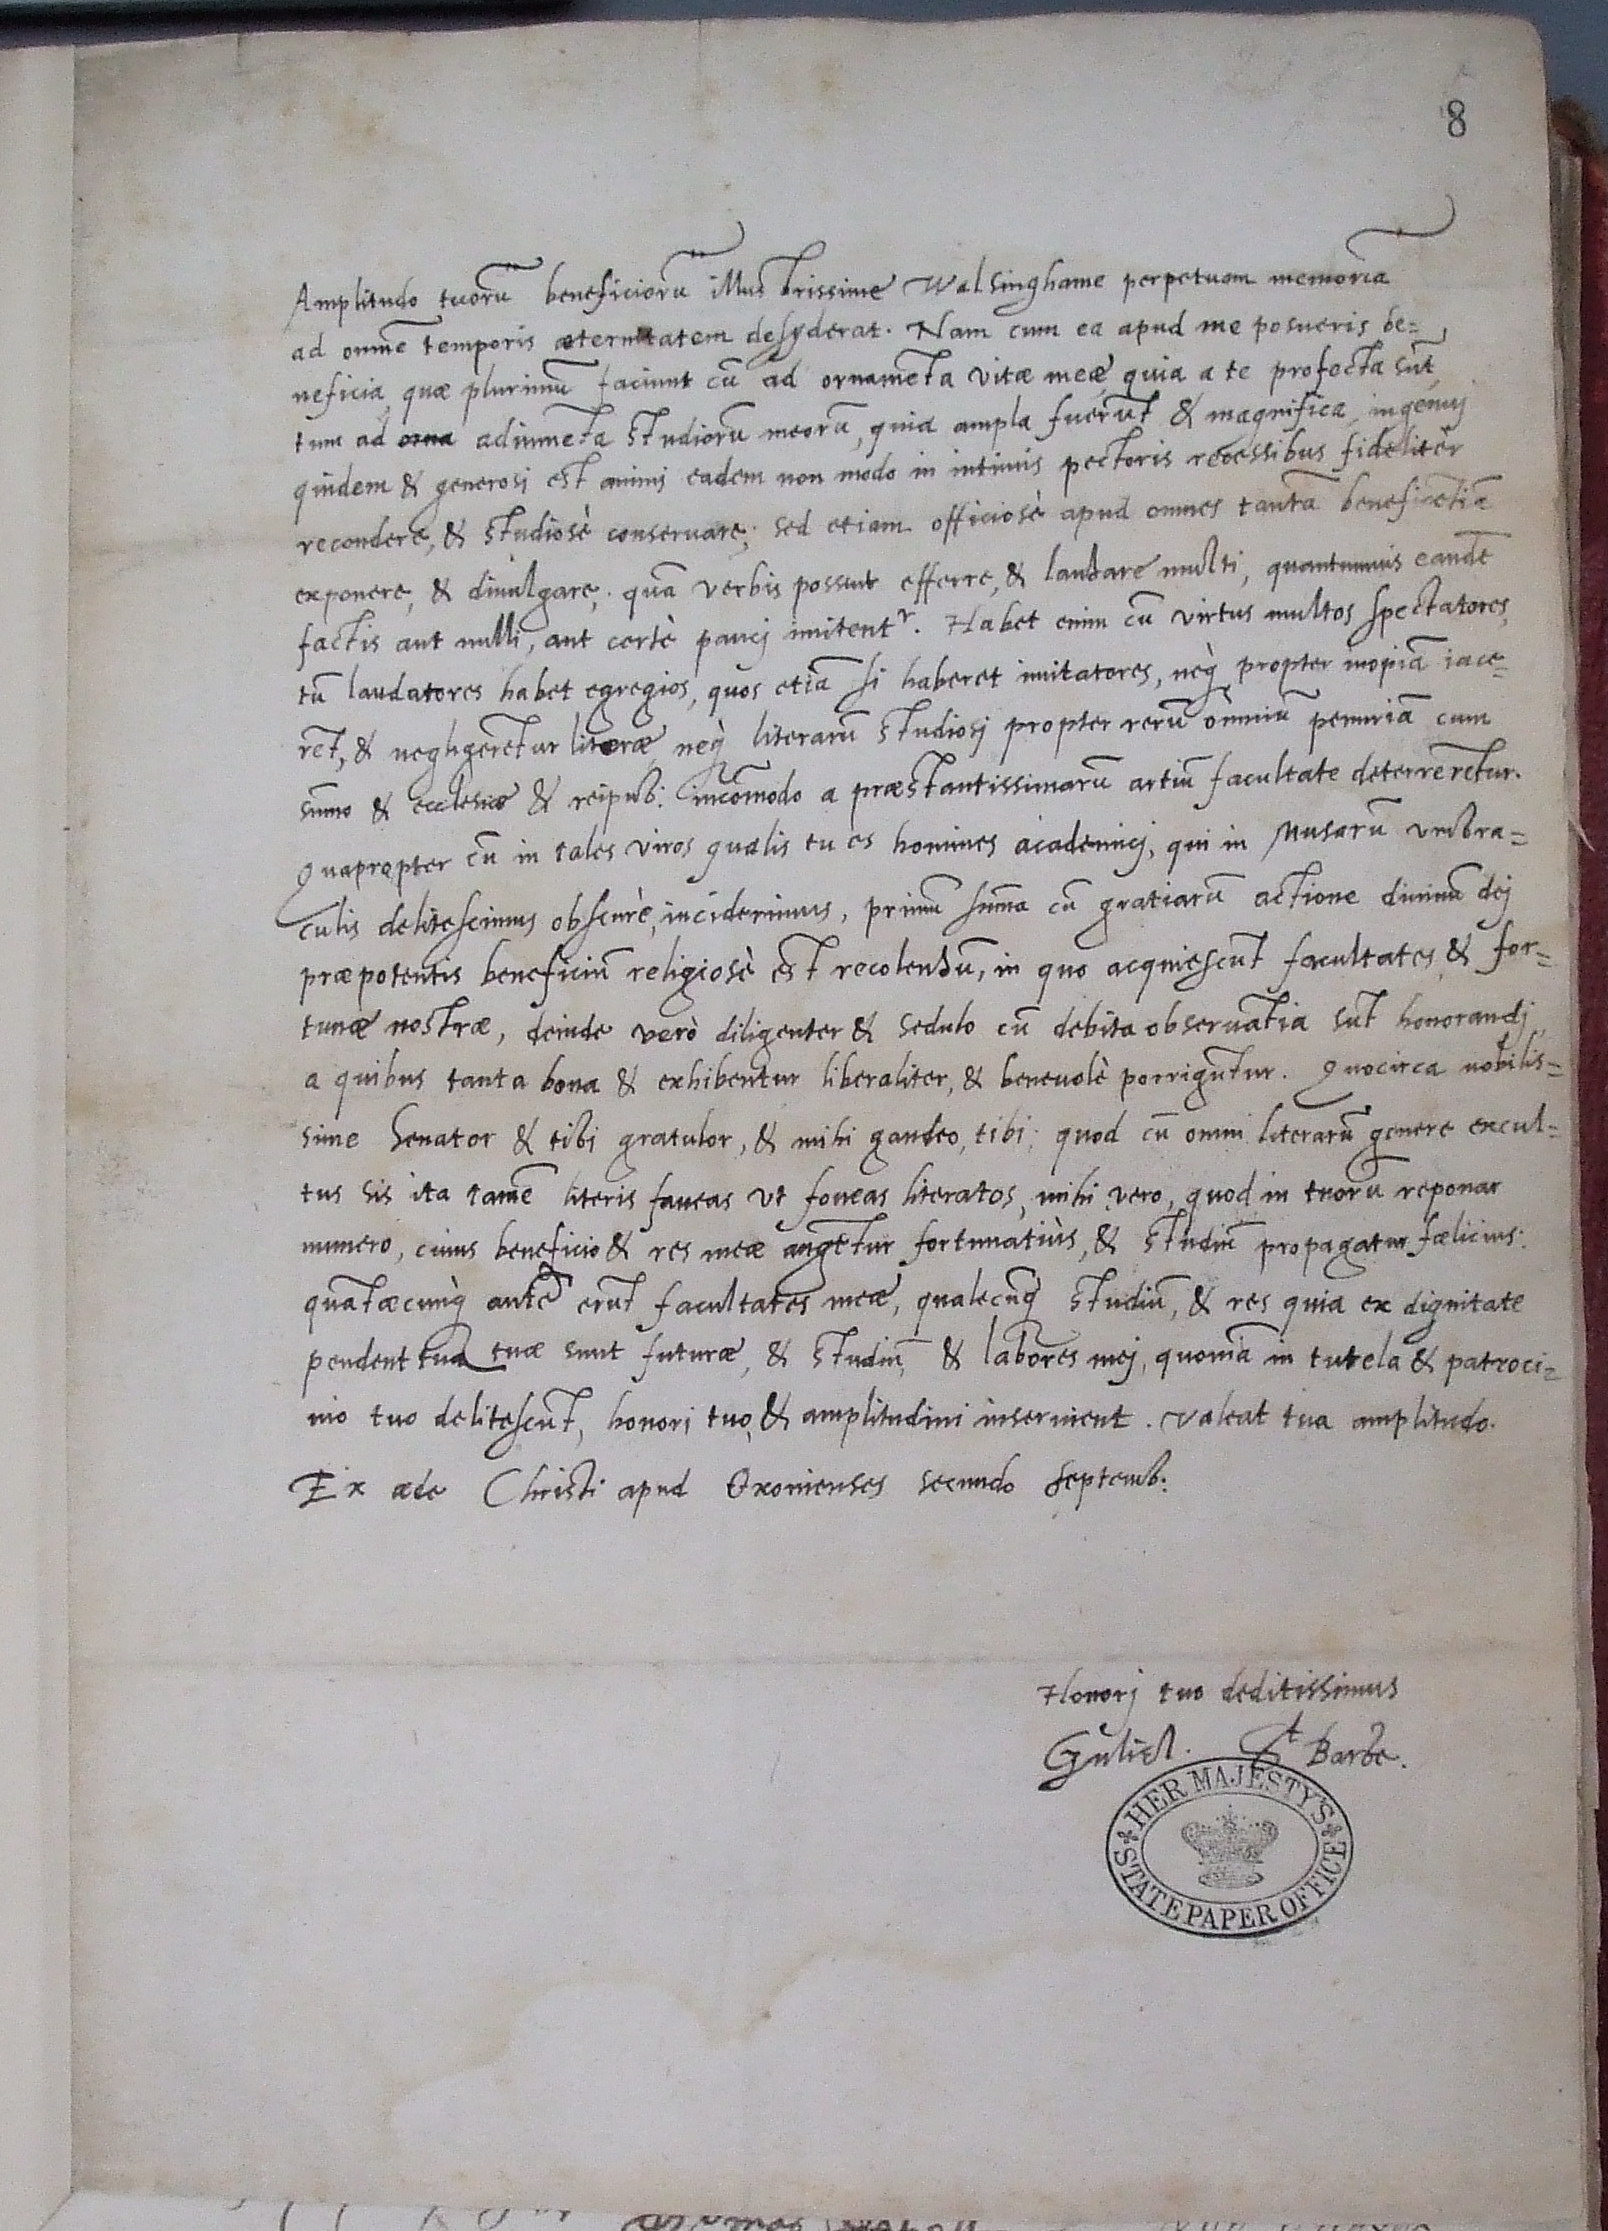 8
Amplitudo tuorū beneficiorū illustrissime Walsinghame perpetuam memoriā
ad omnē temporis æternitatem desyderat. Nam cum ea apud me posueris be=
neficia, quæ plurimū faciunt cū ad ornamēta vitæ meæ, quia a te profecta sūt,
tum ad orna adiumēta studiorū meorū, quia ampla fuerūt & magnifica, ingenuj
quidem & generosi est animj eadem non modo in intimis pectoris recessibus fideliter
recondere, & studiosè conseruare; sed etiam officiosè apud omnes tantā beneficētiā
exponere, & diuulgare, quā verbis possunt efferre, & laudare multi, quantumuis eandē
factis aut nulli, aut certè paucj imitentr. Habet enim cū virtus multos spectatores,
tū laudatores habet egregios, quos etiā si haberet imitatores, neq̀ propter inopiā iace=
rēt, & neghgerētur literæ, neq̀ literarū studiosj propter rerū omniū penuriā cum
sūmo & ecclesiæ & reipub: incōmodo a præstantissimarū artiū facultate deterrerētur.
Quapropter cū in tales viros qualis tu es homines academicj, qui in Musarū vmbra=
culis delitescimus obscurè, inciderimus, primū sūma cū gratiarū actione diuinū dej
præpotentis beneficiū religiosè est recolendū, in quo acquiescūt facultates & for=
tunæ nostræ, deinde verò diligenter & sedulo cū debita obseruātia sūt honorandj,
a quibus tanta bona & exhibentur liberaliter, & beneuolè porrigūtur. Quocirca nobilis=
sime Senator & tibi gratulor, & mihi gaudeo, tibi: quod cū omni literarū genere excul=
tus sis ita tamē literis faueas vt foueas literatos, mihi vero, quod in tuorū reponar
numero, cuius beneficio & res meæ augētur fortunatiùs, & studiū propagatur fælicius:
quātæcunq̀ autē erūt facultates meæ, qualecūq̀ studiū, & res quia ex dignitate
pendent tua tuæ sunt futuræ, & studiū, & labores mej, quoniā in tutela & patroci=
nio tuo delitescūt, honori tuo, & amplitudini inseruient. Valeat tua amplitudo.
Ex æde Christi apud Oxonienses secundo Septemb:
Honorj tuo deditissimus
Guliel. St Barbe.
HER MAJESTY'S
STATE PAPER OFFICE